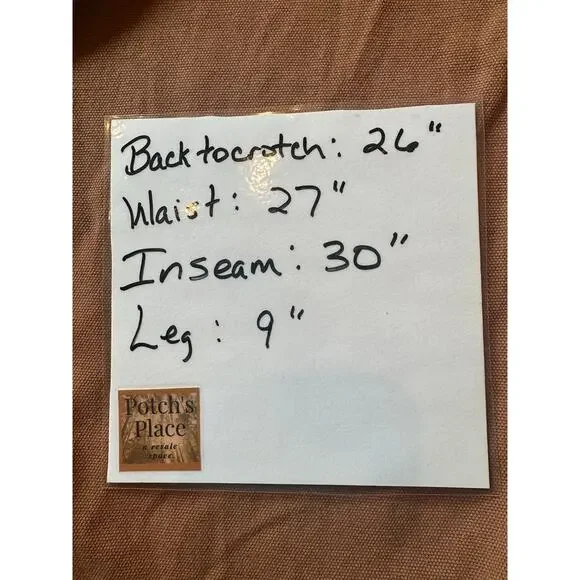 Back to crotch: 26"
Waist: 27"
Inseam: 30"
Leg: 9"
Potch's
Place
a resale
space